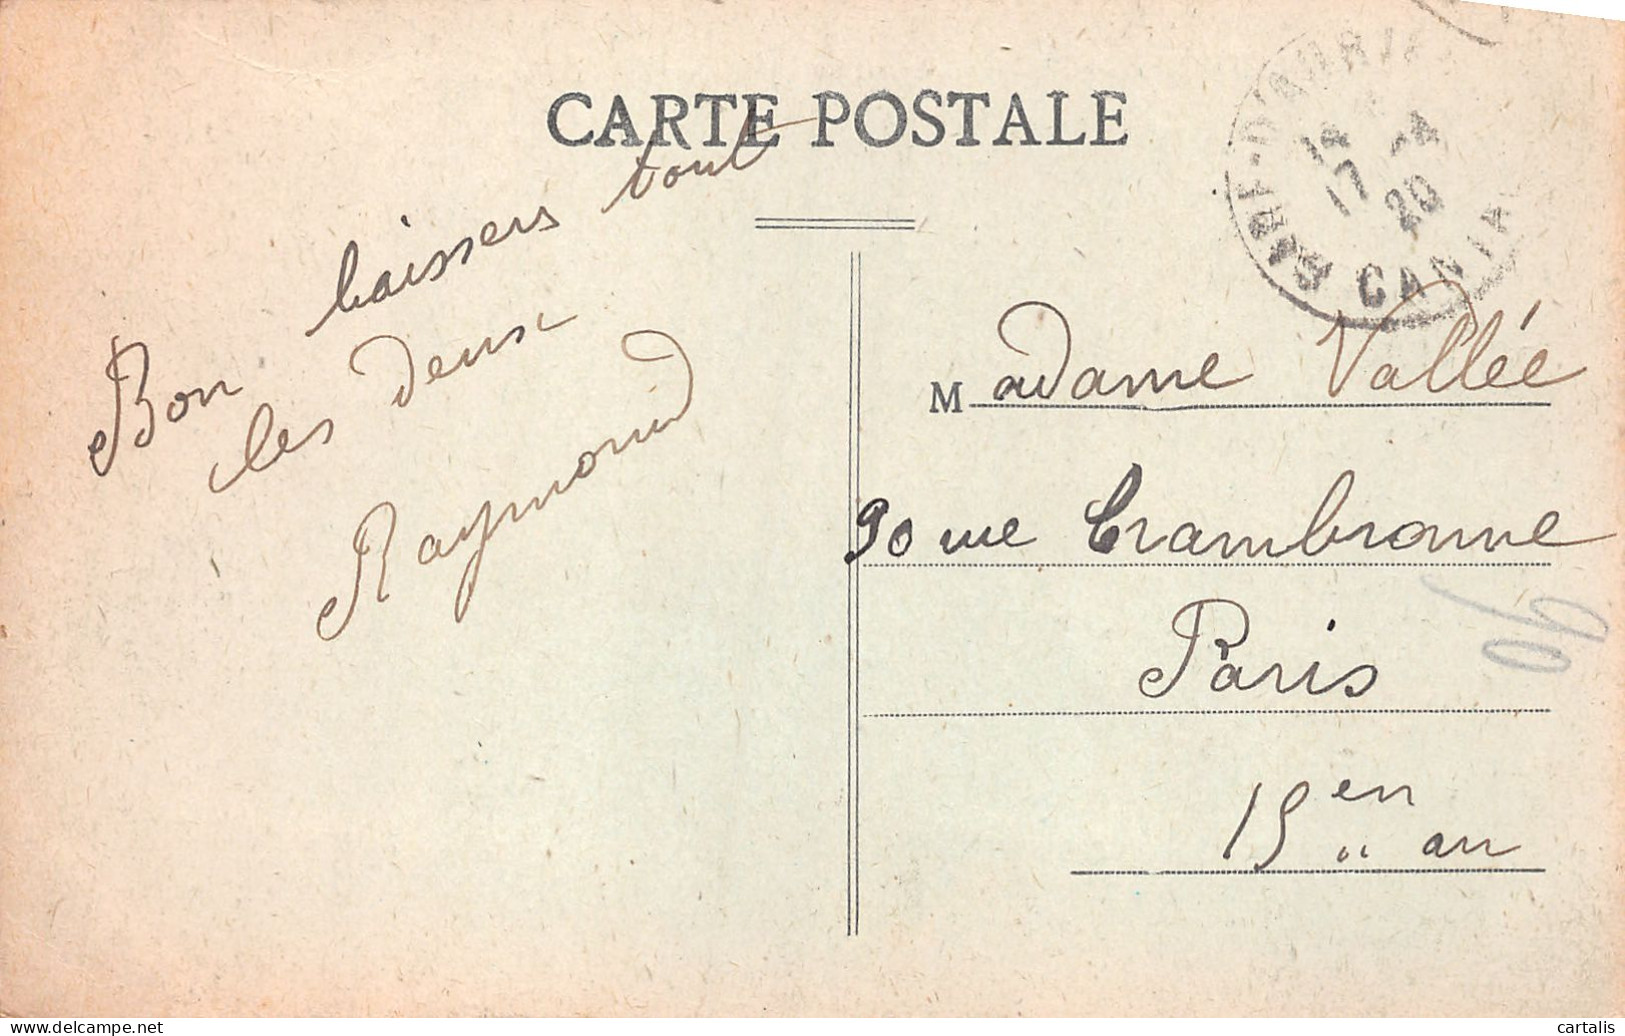 CARTE POSTALE
Bon baissers tout
les deux
Raymond
Madame Vallée
90 rue Crambronne
Paris
15 en an
90
14
17 -4
20
CANTA
cartalis
www.delcampe.net